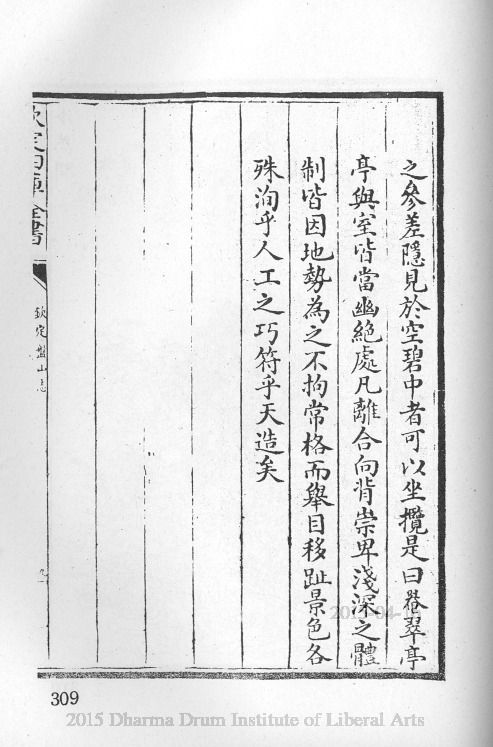 之參差隱見於空碧中者可以坐攬是曰翠亭
亭與室皆當幽絶處凡離合向背崇卑淺深之體
制皆因地勢為之不拘常格而舉目移趾景色各
殊洵乎人工之巧符乎天造矣
欽定四庫全書
欽定盤山志
309
2015 Dharma Drum Institute of Liberal Arts